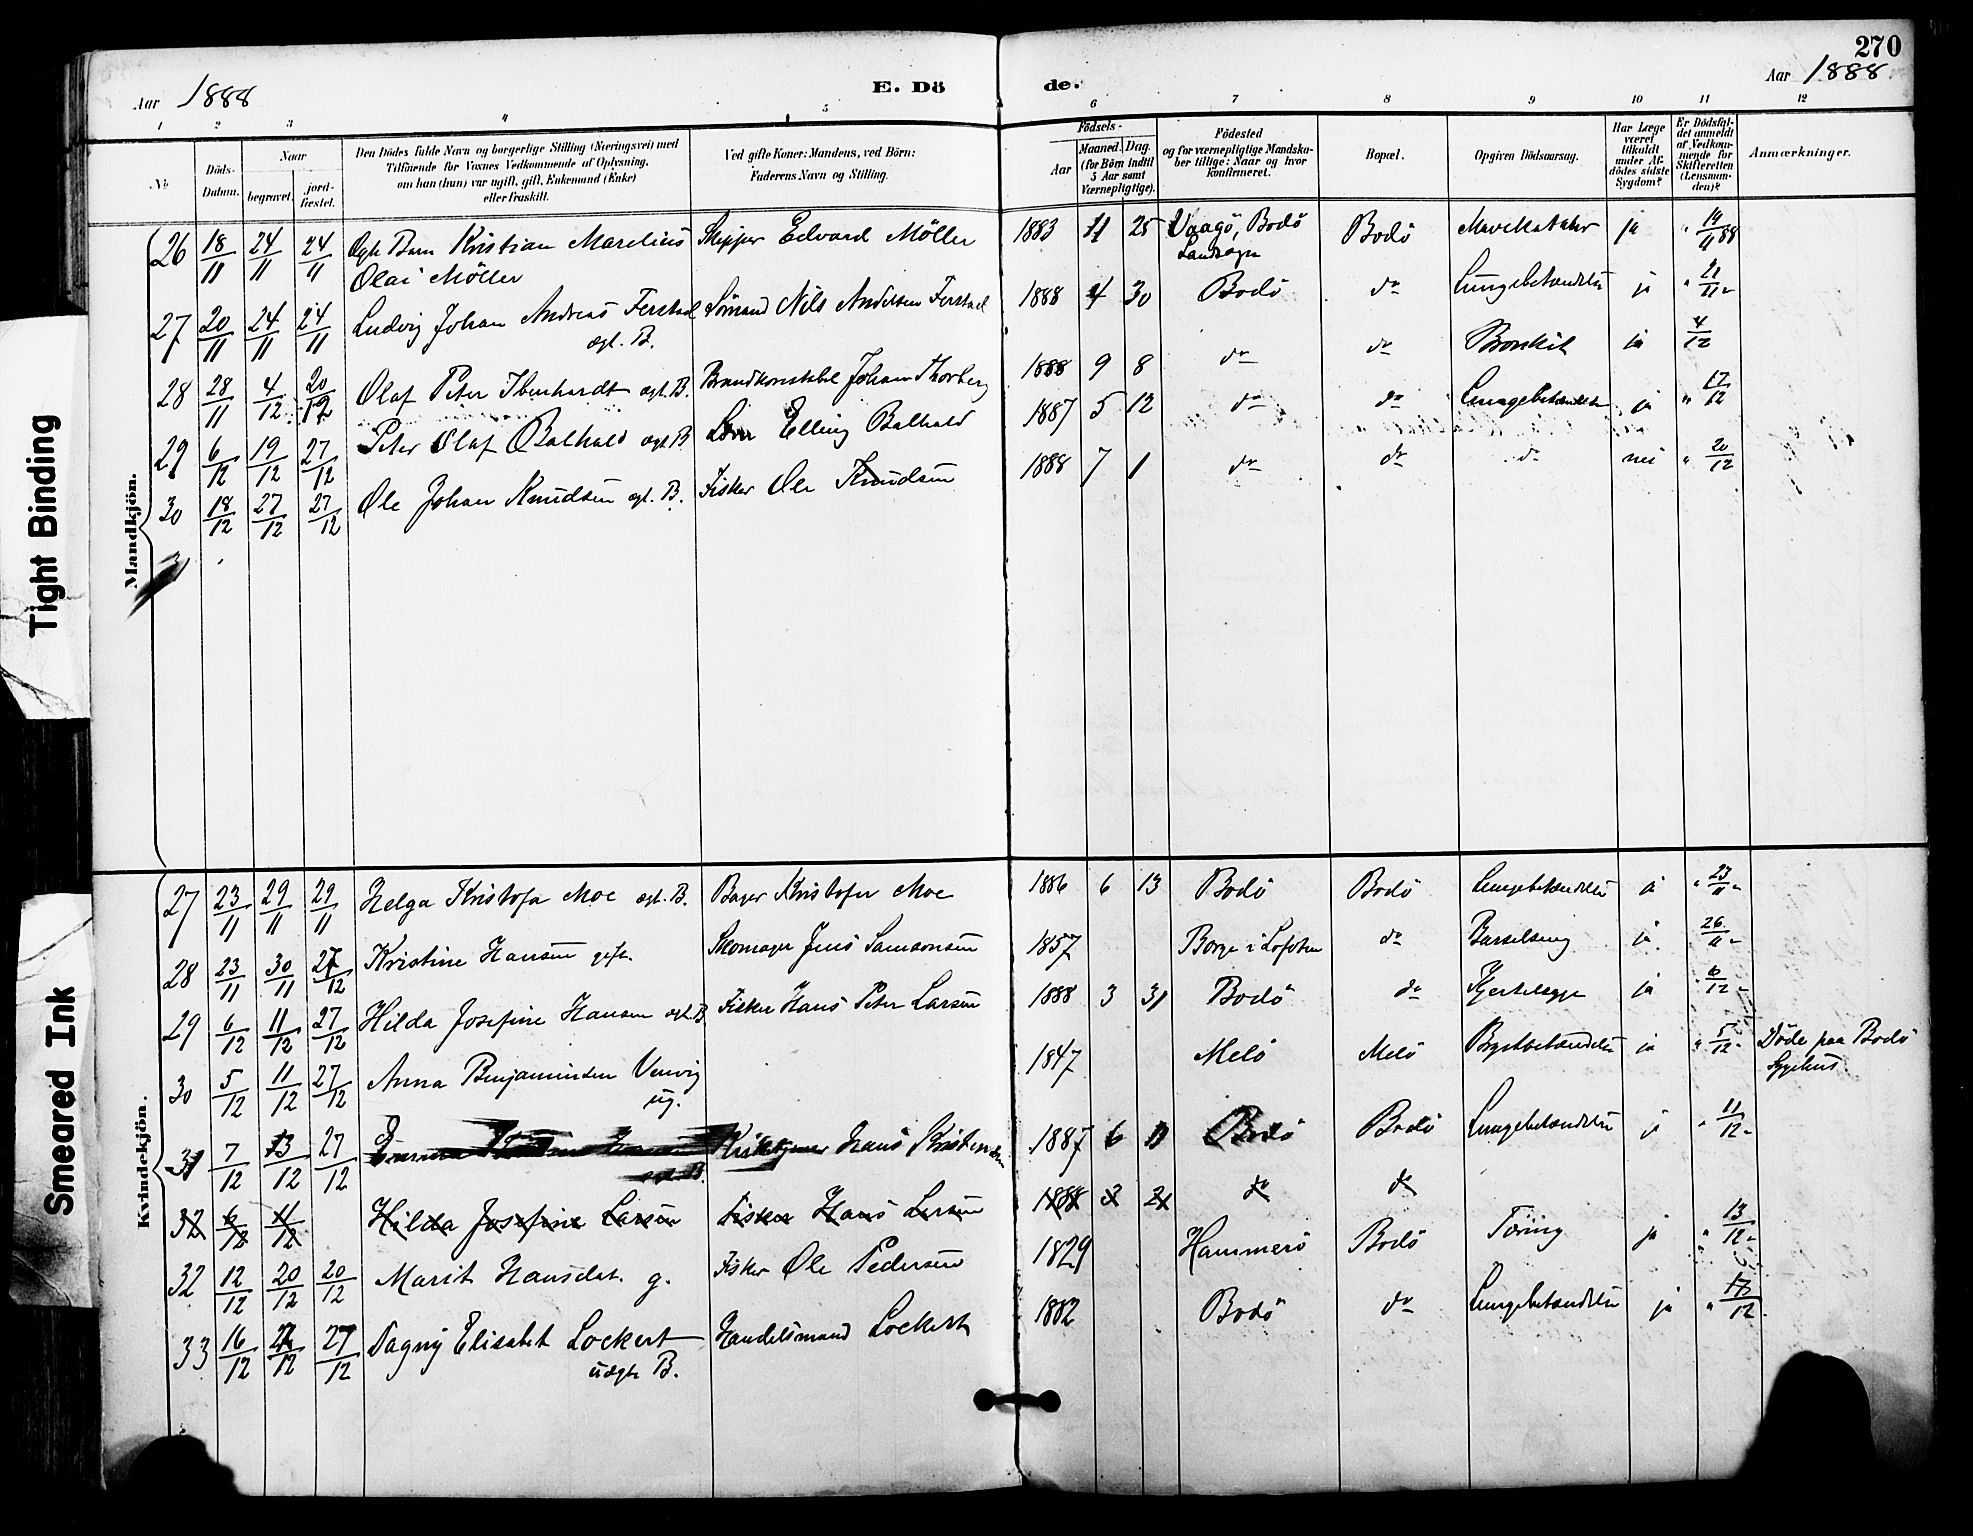 270
Aar 1888
E. Dö
de.
Aar 1888
1 2 3 4 5 6 7 8 9 10 11 12
№
Döds-
Datum.
Naar
begravet.
jord-
fæstet.
Den Dödes fulde Navn og borgerlige Stilling (Næringsvei) med
Tilföiende for Voxnes Vedkommende af Oplysning,
om han (hun) var ugift, gift, Enkemand (Enke)
eller fraskilt.
Ved gifte Koner: Mandens, ved Börn:
Faderens Navn og Stilling.
Födsels-
Aar
Maaned. Dag.
(for Börn indtil
5 Aar samt
Værnepligtige).
Födested
og for værnepligtige Mandska-
ber tillige: Naar og hvor
konfirmeret.
Bopæl.
Opgiven Dödsaarsag.
Har Læge
været
tilkaldt
under Af-
dödes sidste
Sygdom?
Er Dödsfal-
det anmeldt
af Vedkom-
mende for
Skifteretten
(Lensman-
den)?
Anmærkninger.
Mandkjön.
26 18/11 24/11 24/11 Ægte Barn Kristian Marelius Skipper Edvard Möller 1883 11 25 Vaagö, Bodö Bodö Mavekatahr ja " 19/11 88
Olai Möller Landsogn
27 20/11 24/11 24/11 Ludvig Johan Andreas Ferstad Sömand Nils Andersen Ferstad 1888 4 30 Bodö do Lungebetændelse ja " 21/11 "
ægt. B.
28 28/11 4/12 20/12 Olaf Peter Ibenhardt ægt. B. Brandkonstabel Johan Thorberg 1888 9 8 do do Bronkit ja 4/12
29 6/12 19/12 27/12 Peter Olaf Balhald ægt. B Elling Balhald 1887 5 12 do do Lungebetændelse ja " 17/12
30 18/12 27/12 27/12 Ole Johan Knudsen ægt. B. Fisker Ole Knudsen 1888 7 1 do do do nei " 20/12
31
Kvindekjön.
27 23/11 29/11 29/11 Helga Kristofa Moe ægt. B. Bager Kristofer Moe 1886 6 13 Bodö Bodö Lungebetændelse ja " 23/11 "
28 23/11 30/11 27/12 Kristine Hansen gift. Skomager Jens Samsonsen 1857 Borge i Lofoten do Barselseng ja 26/11 "
29 6/12 11/12 27/12 Hilda Josefine Hansen ægt. B. Fisker Hans Peter Larsen 1888 3 31 Bodö do Kjertelsyge ja 6/12 "
30 5/12 11/12 27/12 Anna Benjaminsen Venvig 1847 Melö Melö Brystbetændelse ja " 5/12 " Döde paa Bodö
ug. Sygehus
31 7/12 13/12 27/12 Kirketjener Hans Kristensen 1887 6 11 Bodö Bodö Lungebetændelse ja " 11/12 "
ægt. B.
32 6/12 11/12 Hilda Josefine Larsen Fisker Hans Larsen 1888 3 do do
32 12/12 20/12 20/12 Marit Hansdat. g. Fisker Ole Pedersen 1829 Hammerö Bodö Tæring ja " 13/12 "
33 16/12 27/12 27/12 Dagny Elisabet Lockert Handelsmand Lockert 1882 Bodö do Lungebetændelse ja " 17/12
uægte B.
Tight Binding
Smeared Ink